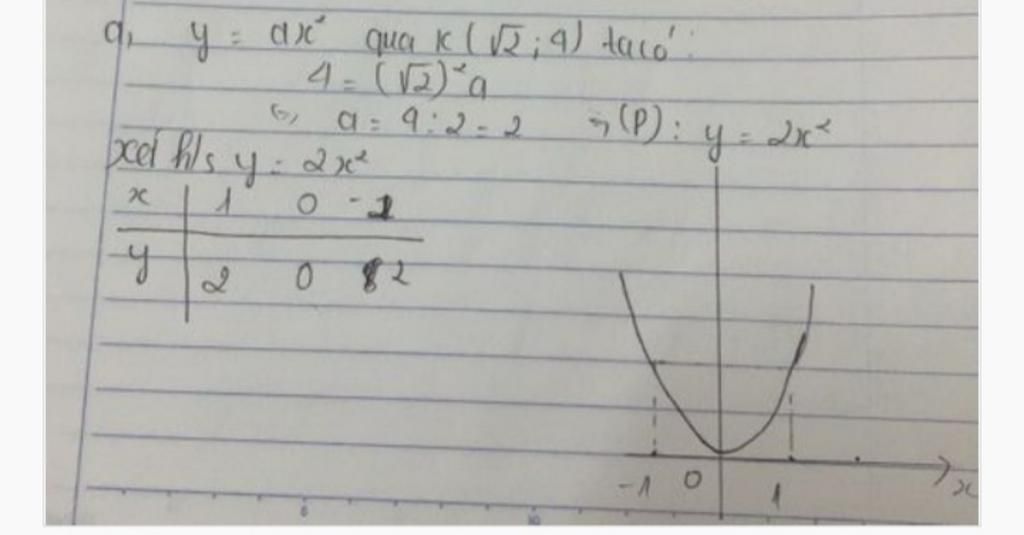 a, y = ax² qua K (√2 ; 4) ta có :
4 = (√2)² a
⇔ a = 4 : 2 = 2 ⇒ (P) : y = 2x²
Xét h/s y = 2x²
x 1 0 -1
y 2 0 2
-1 0 1 x